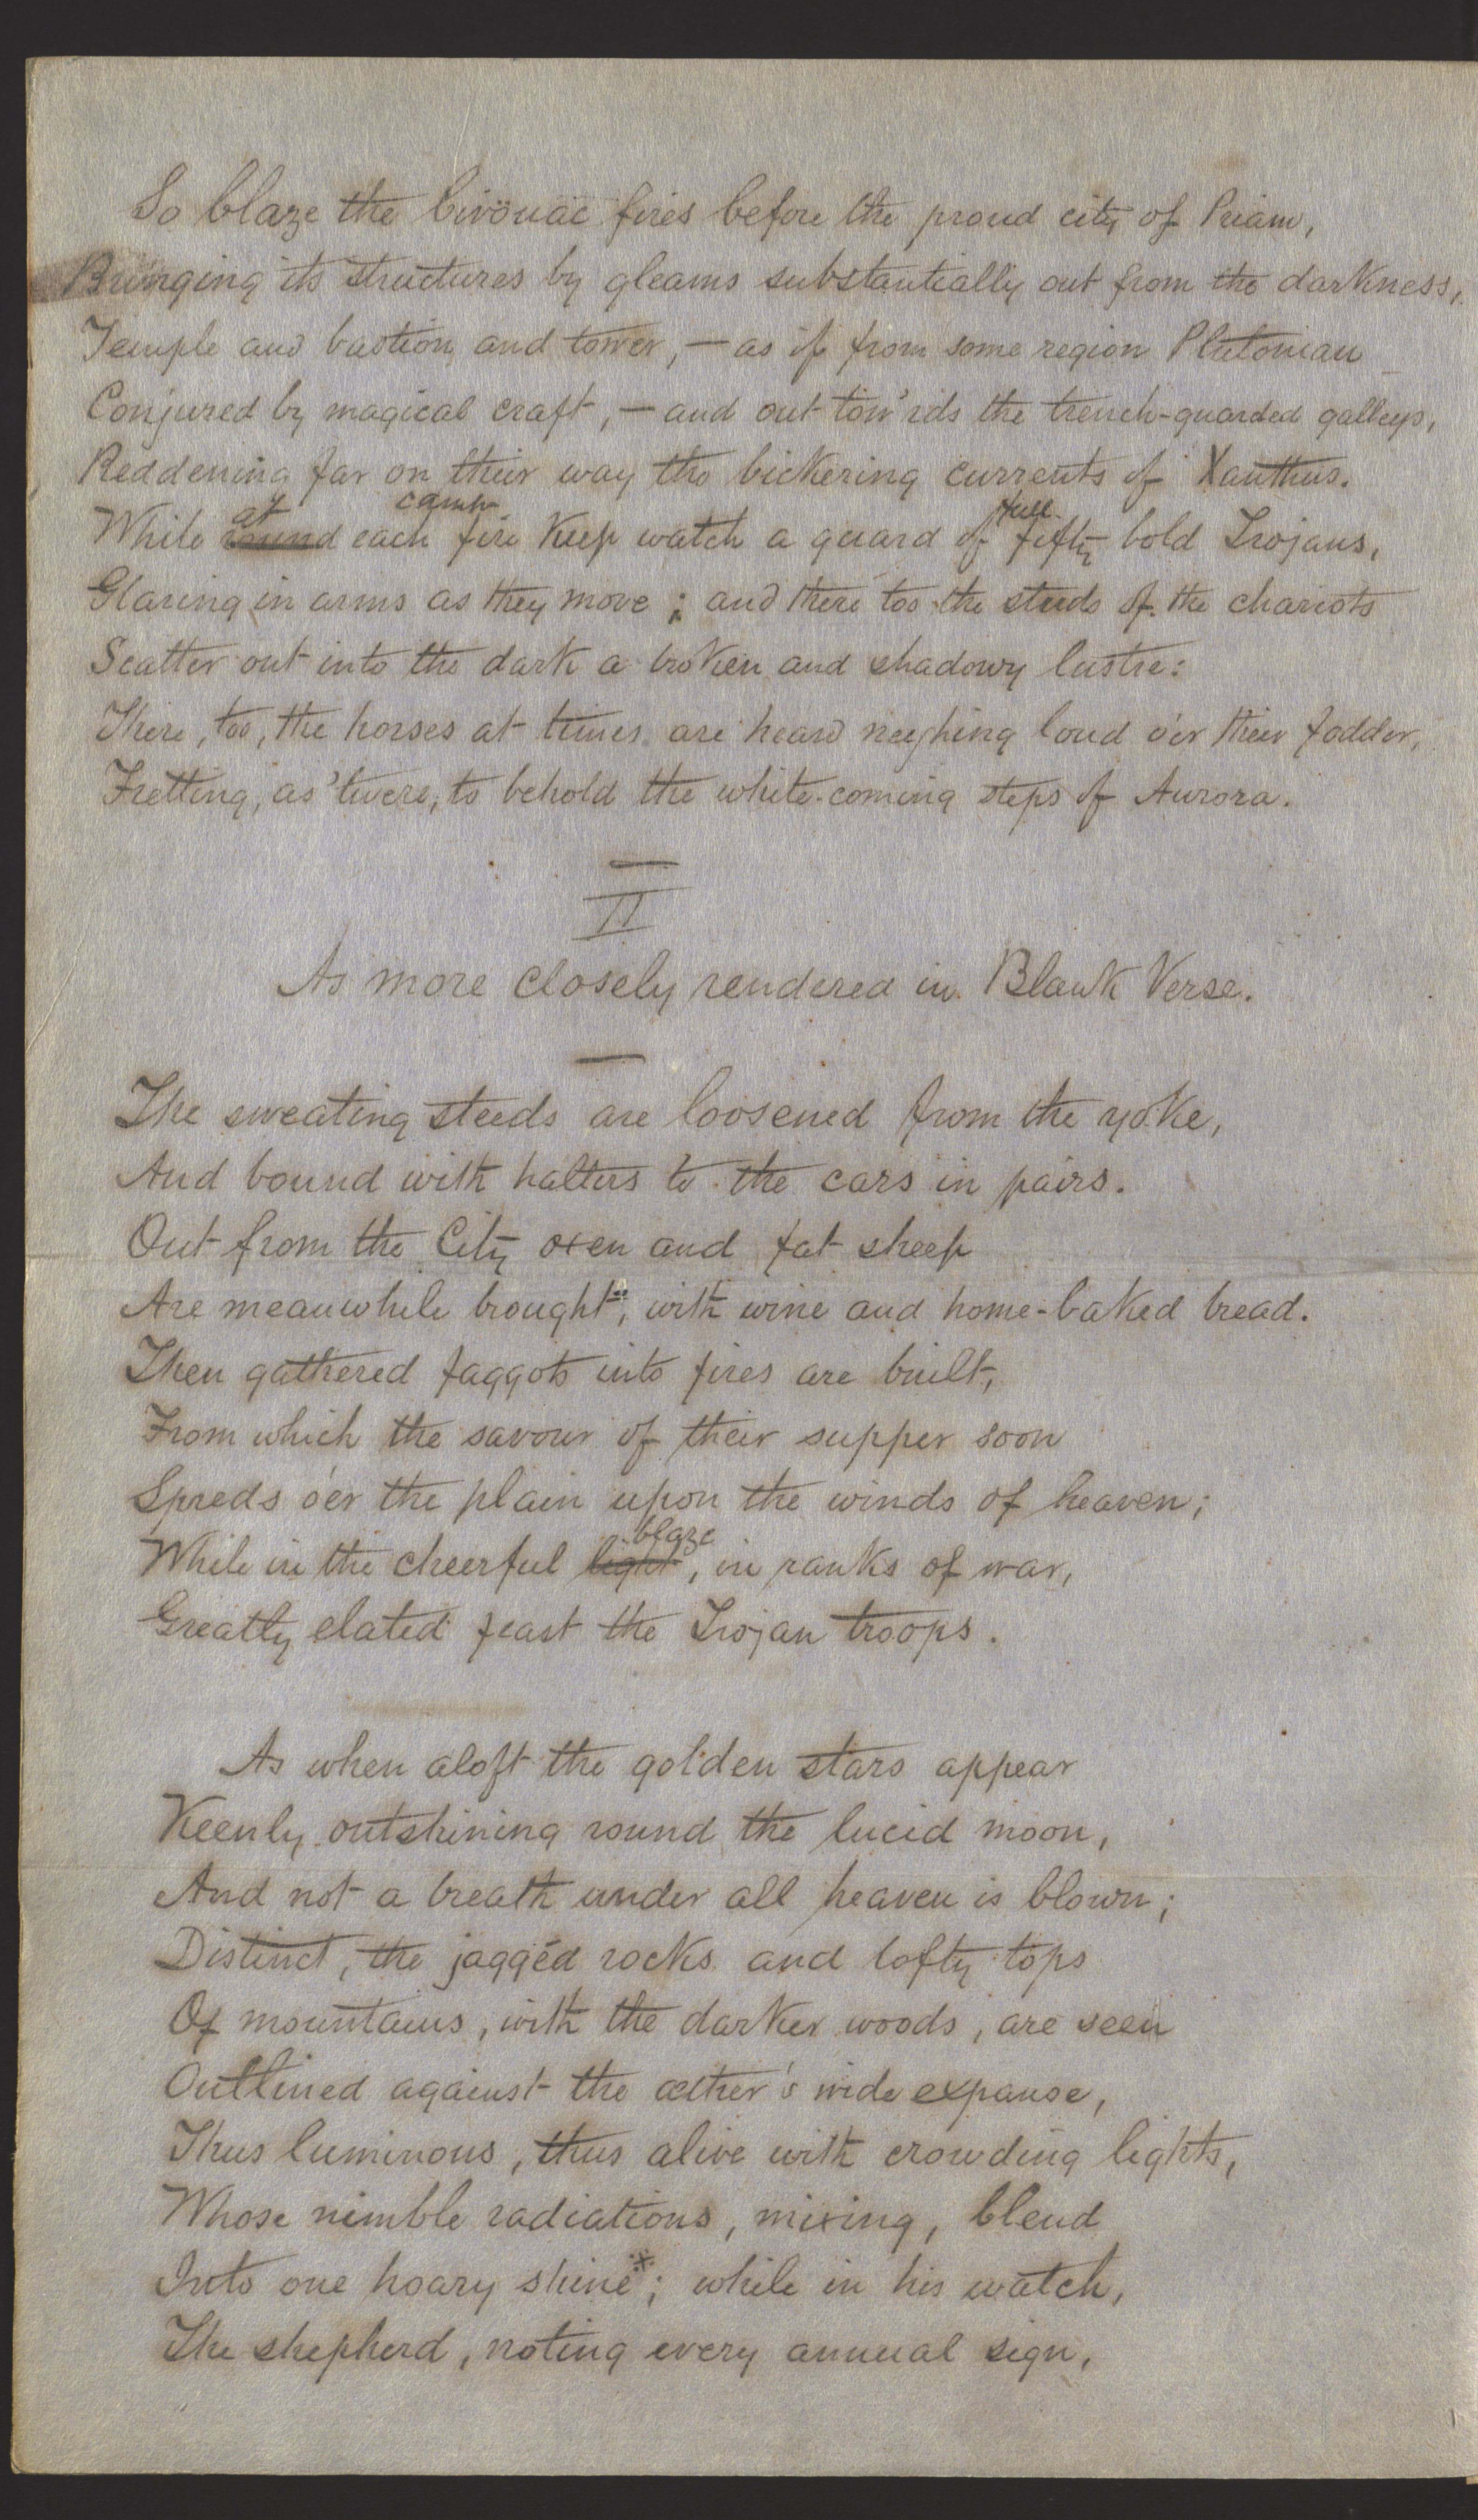 So blaze the bivöuac fires before the proud city of Priam,
Bringing its structures by gleams substantially out from the darkness,
Temple and bastion and tower, — as if from some region Plutonian
Conjured by magical craft, — and out tow'rds the trench-guarded galleys,
Reddening far on their way the bickering currents of Xanthus.
at camp full
While round each fire keep watch a guard of fifty bold Trojans,
Glaring in arms as they move; and there too the steeds of the chariots
Scatter out into the dark a broken and shadowy lustre:
There, too, the horses at times are heard neighing loud o'er their fodder,
Fretting, as 'twere, to behold the white-coming steps of Aurora.
II
As more closely rendered in Blank Verse.
The sweating steeds are loosened from the yoke,
And bound with halters to the cars in pairs.
Out from the City oxen and fat sheep
Are meanwhile brought, with wine and home-baked bread.
Then gathered faggots into fires are built,
From which the savour of their supper soon
Spreds o'er the plain upon the winds of heaven;
blaze
While in the cheerful light, in ranks of war,
Greatly elated feast the Trojan troops.
As when aloft the golden stars appear
Keenly outshining round the lucid moon,
And not a breath under all heaven is blown;
Distinct, the jaggéd rocks and lofty tops
Of mountains, with the darker woods, are seen
Outlined against the æther's wide expanse,
Thus luminous, thus alive with crowding lights,
Whose nimble radiations, mixing, blend
Into one hoary shine*; while in his watch,
The shepherd, noting every annual sign,